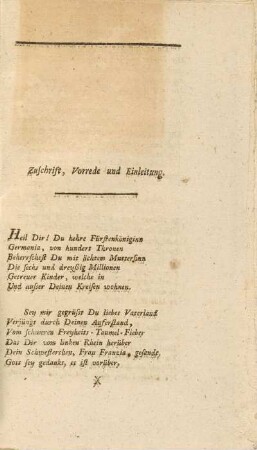 Zuschrift, Vorrede und Einleitung.
Heil Dir! Du hehre Fürstenköniginn
Germania, von hundert Thronen
Beherrschest Du mit lichtem Muttersinn
Die sechs und dreyßig Millionen
Getreuer Kinder, welche in
Und außer Deinen Kreisen wohnen.
Sey mir gegrüßt Du liebes Vaterland
Verjüngt durch Deinen Auferstand,
Vom schweren Freyheits-Taumel-Fieber
Das Dir vom linken Rhein herüber
Dein Schwesterchen, Frau Franzia, gesandt,
Gott sey gedankt, es ist vorüber,
X